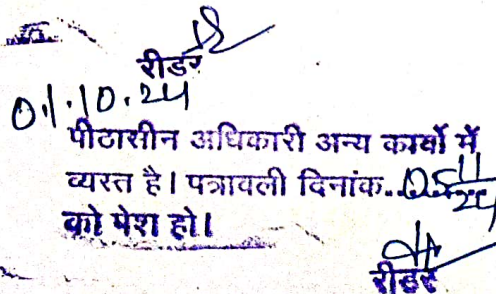 रीडर
01.10.24
पीठासीन अधिकारी अन्य कार्यो में
व्यस्त है। पत्रावली दिनांक..05/11/24
को पेश हो।
रीडर